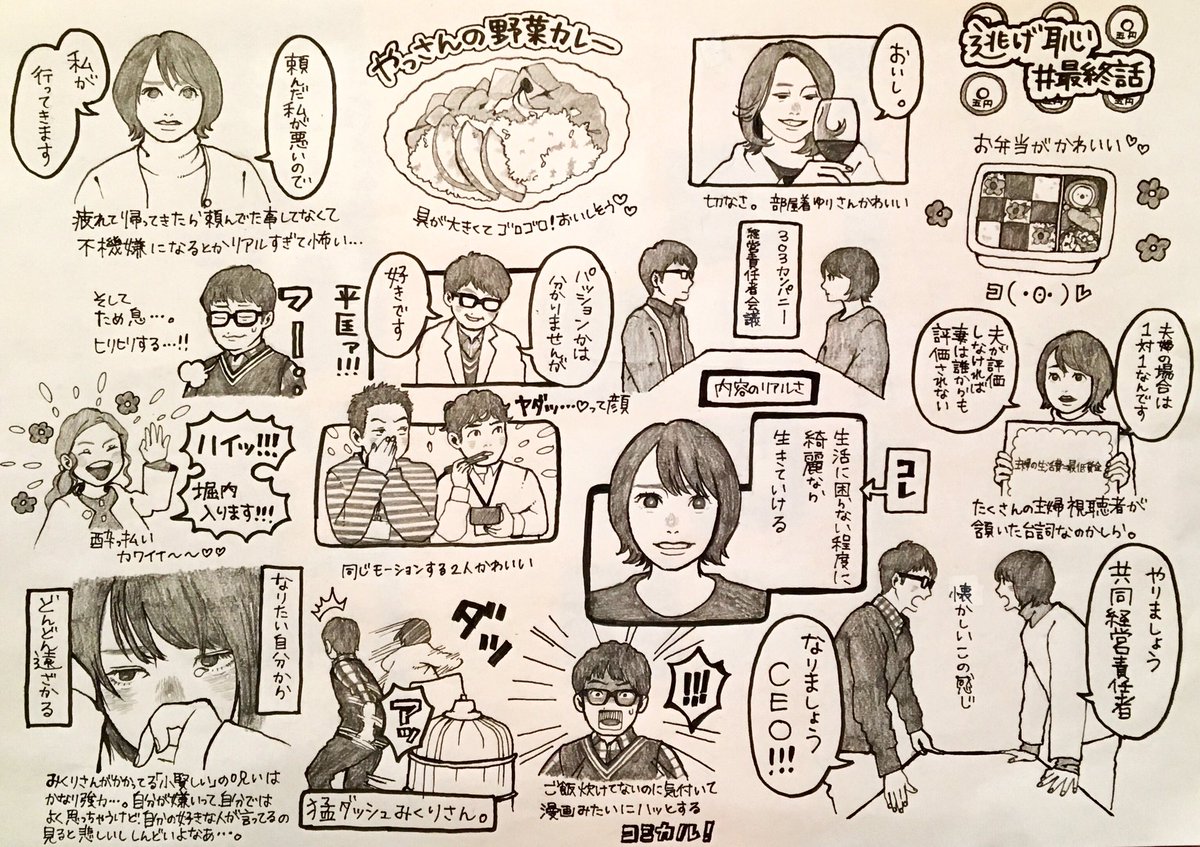 逃げ恥
#最終話
五円
五円
五円
お弁当がかわいい♡♡
ヨ(・O・)
おいし。
切なさ。部屋着ゆりさんかわいい
やっさんの野菜カレー
具が大きくてゴロゴロ!おいしそう♡♡
頼んだ私が悪いので
私が
行ってきます
疲れて帰ってきたら頼んでた事してなくて
不機嫌になるとかリアルすぎて怖い…
夫婦の場合は
1対1なんです
夫が評価
しなければ
妻は誰からも
評価されない
主婦の生活費=最低賃金
たくさんの主婦視聴者が
頷いた台詞なのかしら。
303カンパニー
経営責任者会議
内容のリアルさ
コレ
生活に困らない程度に
綺麗なら
生きていける
パッションかは
分かりませんが
好きです
平匡ァ!!!
フー…
そして
ため息…。
ヒリヒリする…!!
ヤダッ…♡って顔
同じモーションする2人かわいい
ハイッ!!!
堀内
入ります!!!
酔っ払い
カワイイ〜〜♡♡
やりましょう
共同経営責任者
懐かしいこの感じ
なりましょう
CEO!!!
!!!
ご飯炊けてないのに気付いて
漫画みたいにハッとする
コミカル!
ダッ
アッ
猛ダッシュみくりさん。
なりたい自分から
どんどん遠ざかる
みくりさんがかかってる「小賢しい」の呪いは
かなり強力…。自分が嫌いって、自分では
よく思っちゃうけど自分の好きな人が言ってるの
見ると悲しいし しんどいよなあ…。